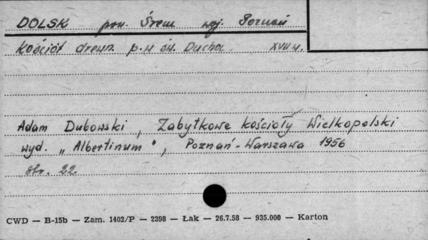 DOLSK pow. Śrem woj. Poznań
Kościół drewn. p.w. św. Ducha. XVIII w.
Adam Dubowski, Zabytkowe kościoły Wielkopolski
wyd. „Albertinum", Poznań-Warszawa 1956
str. 22
CWD — B-15b — Zam. 1402/P — 2398 — Łak — 26.7.58 — 935.000 — Karton